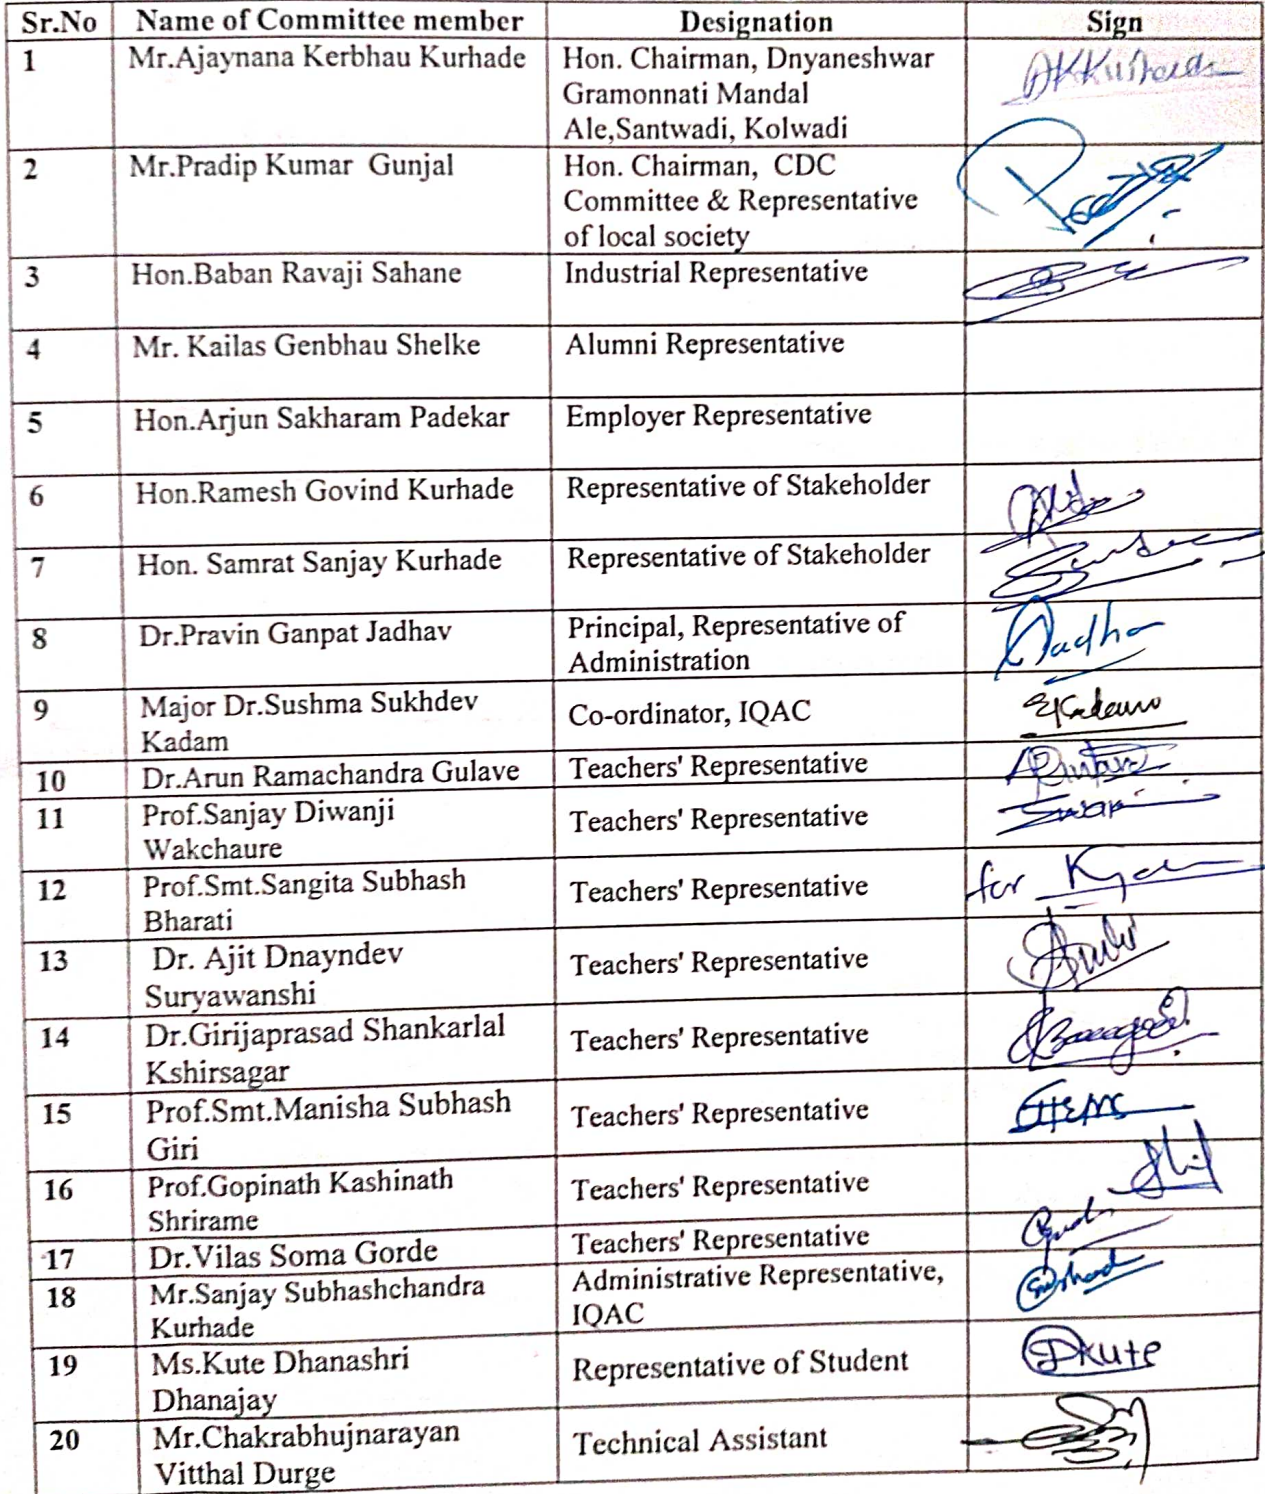 Sr.No Name of Committee member Designation Sign
1 Mr.Ajaynana Kerbhau Kurhade Hon. Chairman, Dnyaneshwar AKKurhade
Gramonnati Mandal
Ale,Santwadi, Kolwadi
2 Mr.Pradip Kumar Gunjal Hon. Chairman, CDC
Committee & Representative
of local society
3 Hon.Baban Ravaji Sahane Industrial Representative
4 Mr. Kailas Genbhau Shelke Alumni Representative
5 Hon.Arjun Sakharam Padekar Employer Representative
6 Hon.Ramesh Govind Kurhade Representative of Stakeholder
7 Hon. Samrat Sanjay Kurhade Representative of Stakeholder
8 Dr.Pravin Ganpat Jadhav Principal, Representative of
Administration
9 Major Dr.Sushma Sukhdev Co-ordinator, IQAC
Kadam
10 Dr.Arun Ramachandra Gulave Teachers' Representative
11 Prof.Sanjay Diwanji Teachers' Representative
Wakchaure
12 Prof.Smt.Sangita Subhash Teachers' Representative for
Bharati
13 Dr. Ajit Dnayndev Teachers' Representative
Suryawanshi
14 Dr.Girijaprasad Shankarlal Teachers' Representative
Kshirsagar
15 Prof.Smt.Manisha Subhash Teachers' Representative
Giri
16 Prof.Gopinath Kashinath Teachers' Representative
Shrirame
17 Dr.Vilas Soma Gorde Teachers' Representative
18 Mr.Sanjay Subhashchandra Administrative Representative,
Kurhade IQAC
19 Ms.Kute Dhanashri Representative of Student DKute
Dhanajay
20 Mr.Chakrabhujnarayan Technical Assistant
Vitthal Durge